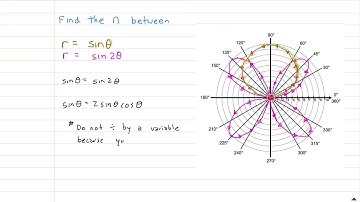 Find the ∩ between
r = sinθ
r = sin 2θ
sinθ = sin2θ
sinθ = 2 sinθ cosθ
* Do not ÷ by a variable
because yo
90°
120°
60°
135°
45°
180°
360°
210°
225°
315°
240°
300°
270°